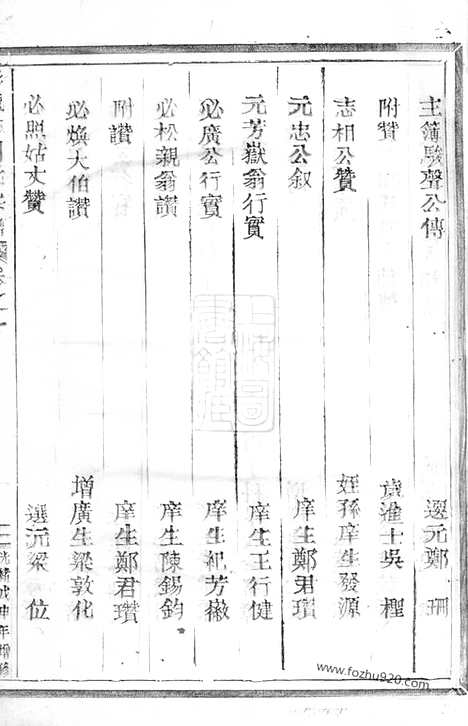 主簿駿聲公傳 選元鄭珊
附贊 歲進士吳桱
志相公贊 姪孫庠生發源
元忠公叙 庠生鄭君瓚
元芳嶽翁行實 庠生王行健
必廣公行實 庠生祀芳徽
必松親翁讃 庠生陳錫鈞
附讃 庠生鄭君瓚
必煥大伯讃 增廣生梁敦化
必照姑丈贊 選元梁位
光緒戊申年增修
https://www.fozhu920.com